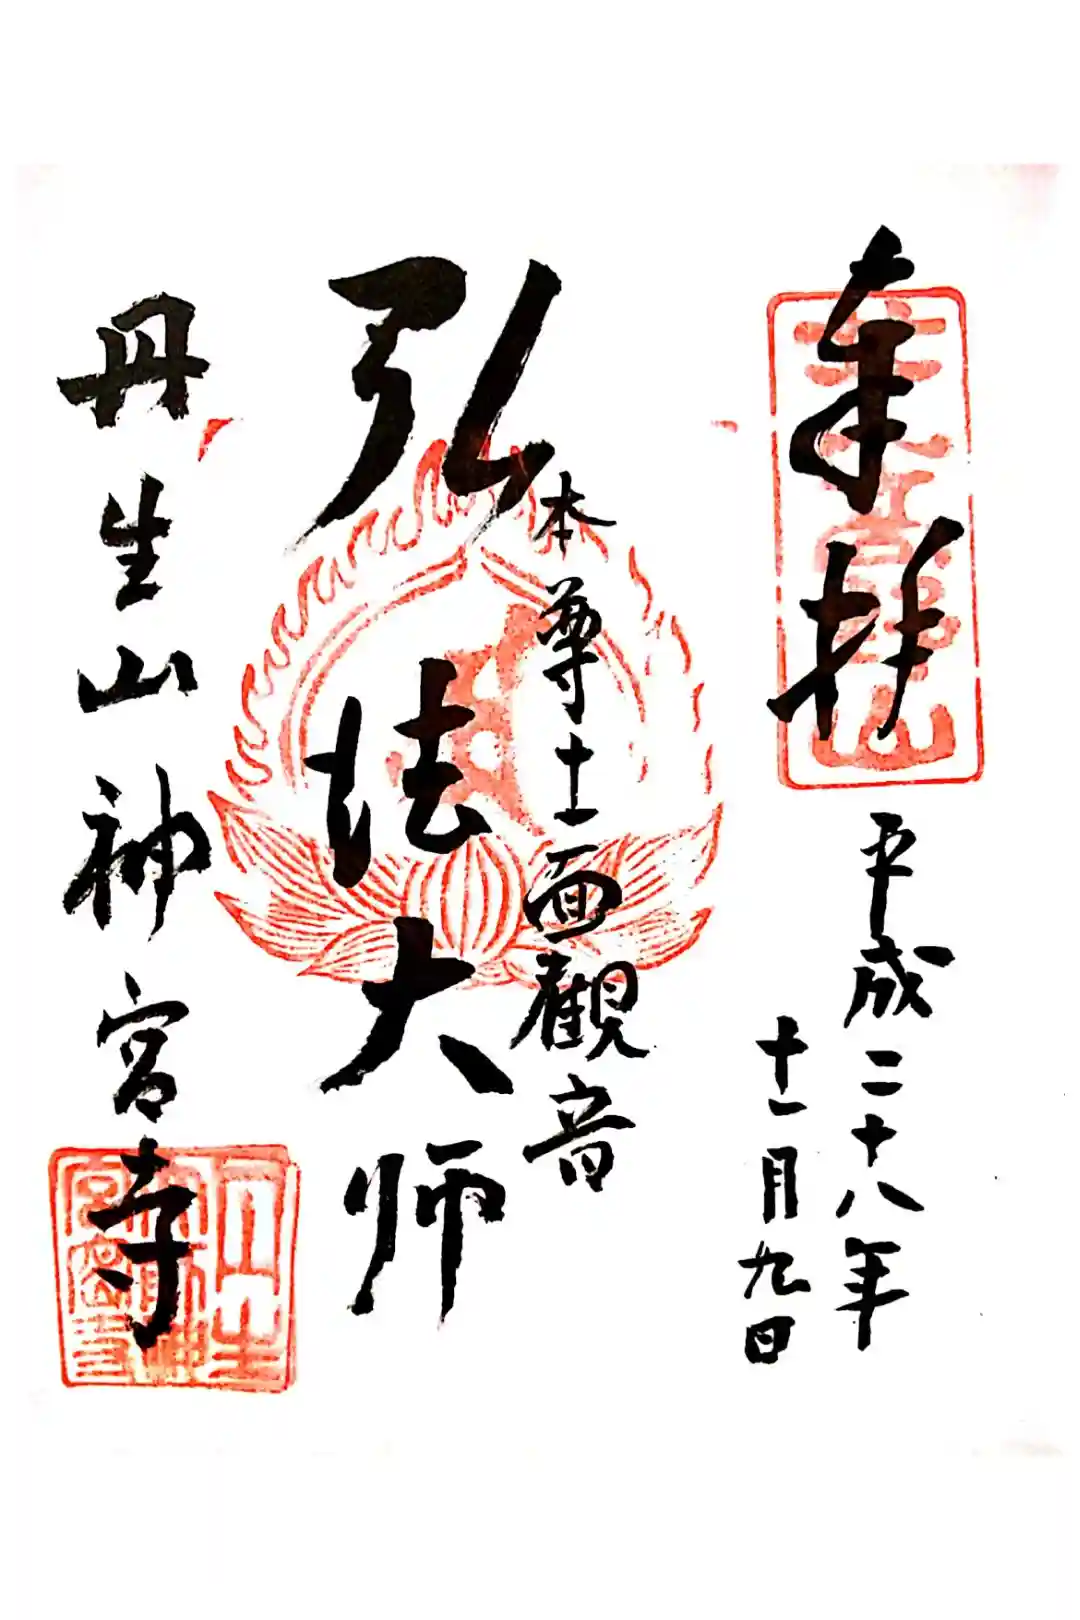 奉拝
平成二十八年
十一月九日
本尊十一面観音
弘法大師
丹生山神宮寺